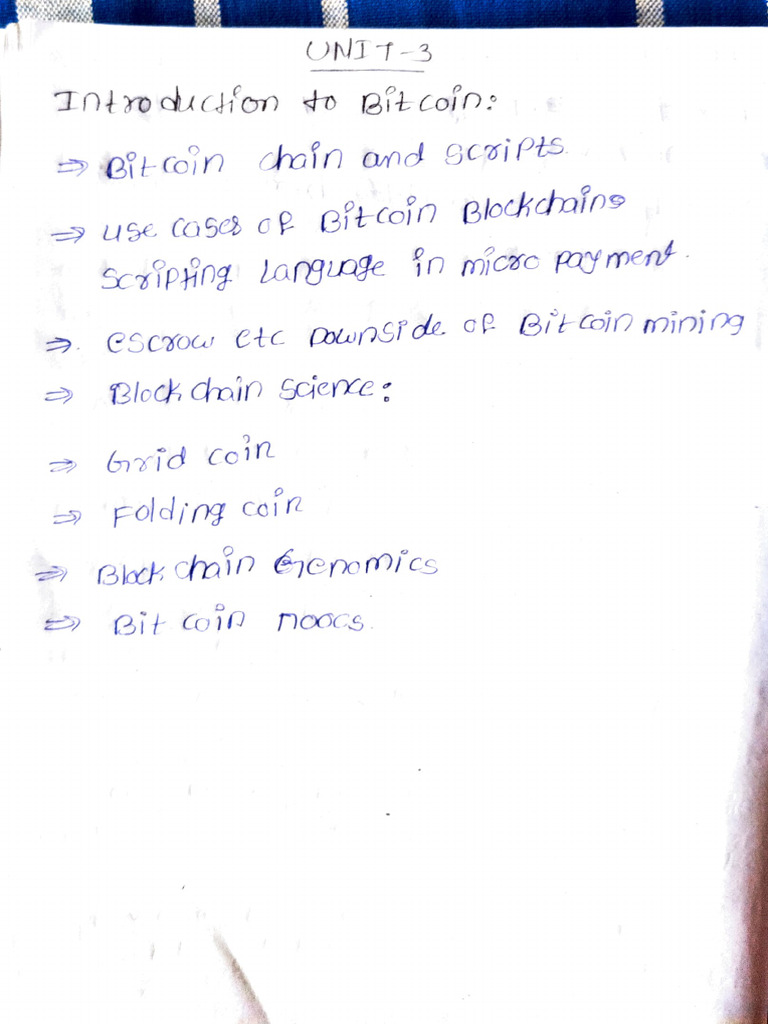 UNIT-3
Introduction to Bitcoin:
⇒ Bitcoin chain and scripts.
⇒ use cases of Bitcoin Blockchains
scripting language in micro payment.
⇒ escrow etc Downside of Bitcoin mining
⇒ Block chain science:
⇒ Grid coin
⇒ Folding coin
⇒ Block chain Genomics
⇒ Bit coin moocs.